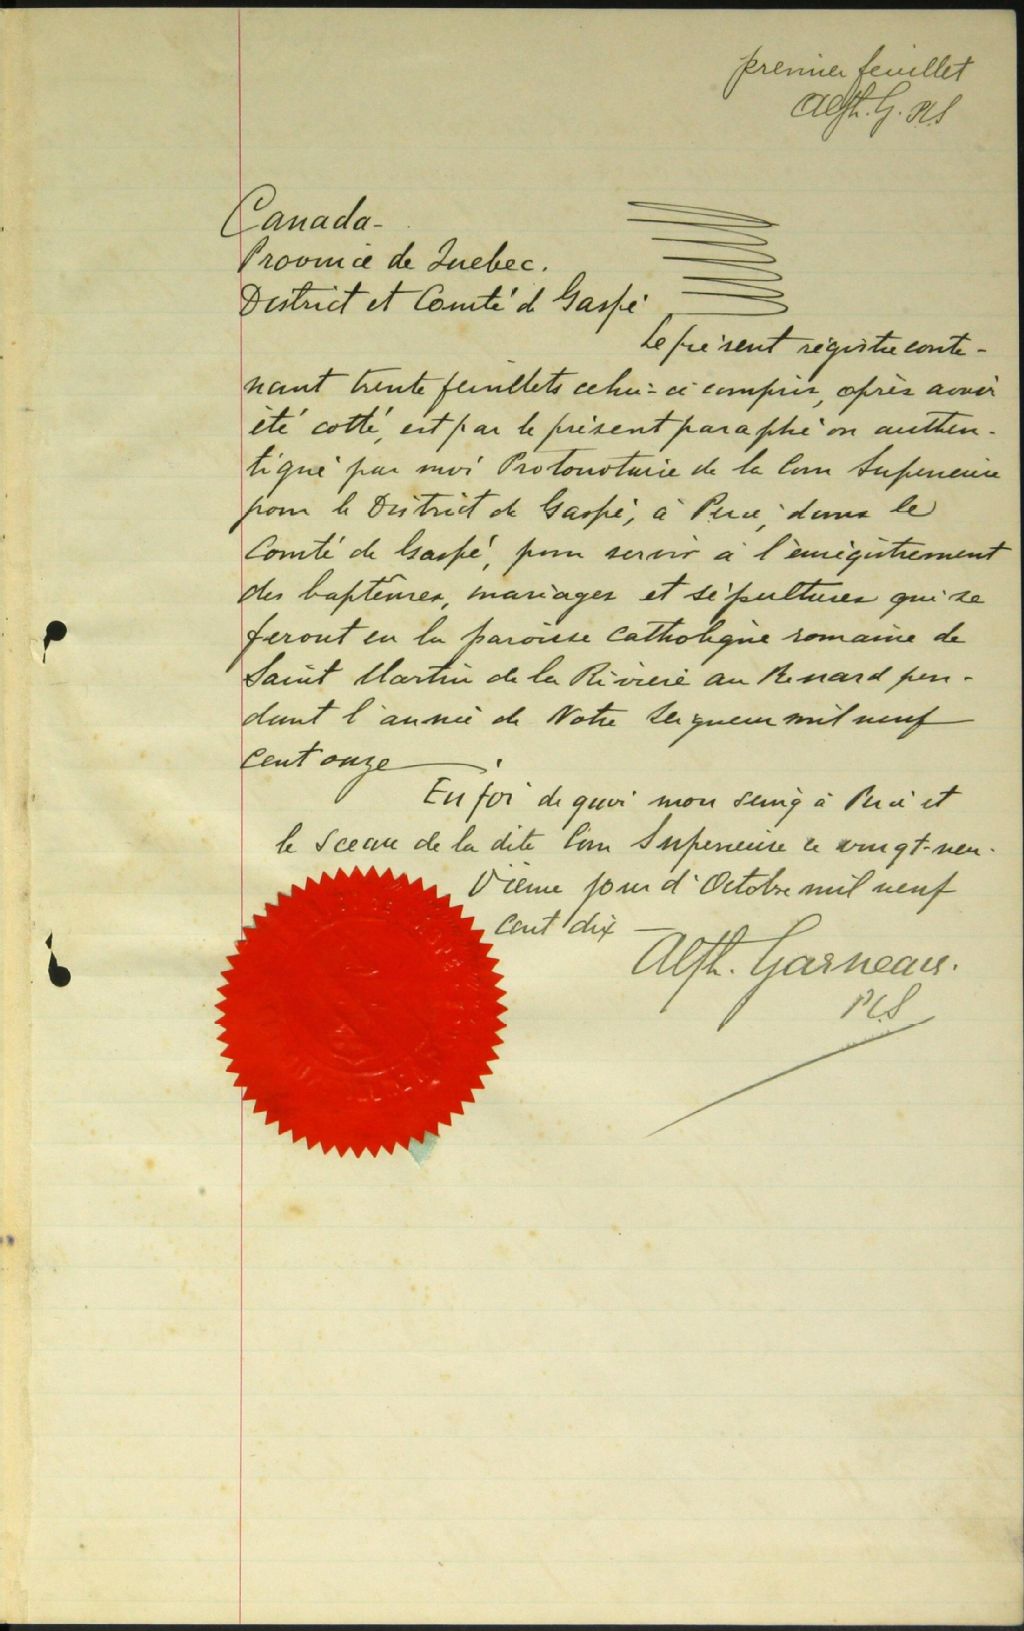 premier feuillet
Alph. G. P.C.S
Canada-
Province de Quebec.
District et Comté de Gaspé
Le présent régistre conte-
nant trente feuillets celui-ci compris, après avoir
été cotté, est par le présent paraphé on authen-
tiqué par moi Protonotaire de la Cour Superieure
pour le District de Gaspé, à Percé, dans le
Comté de Gaspé, pour servir à l'enrégistrement
des baptêmes, mariages et sépultures qui se
feront en la paroisse Catholique romaine de
Saint Martin de la Rivière au Renard pen-
dant l'année de Notre Seigneur mil neuf
cent onze
En foi de quoi mon seing à Percé et
le Sceau de la dite Cour Superieure ce vingt-neu-
vième jour d'Octobre mil neuf
cent dix
Alph. Garneau.
P.C.S